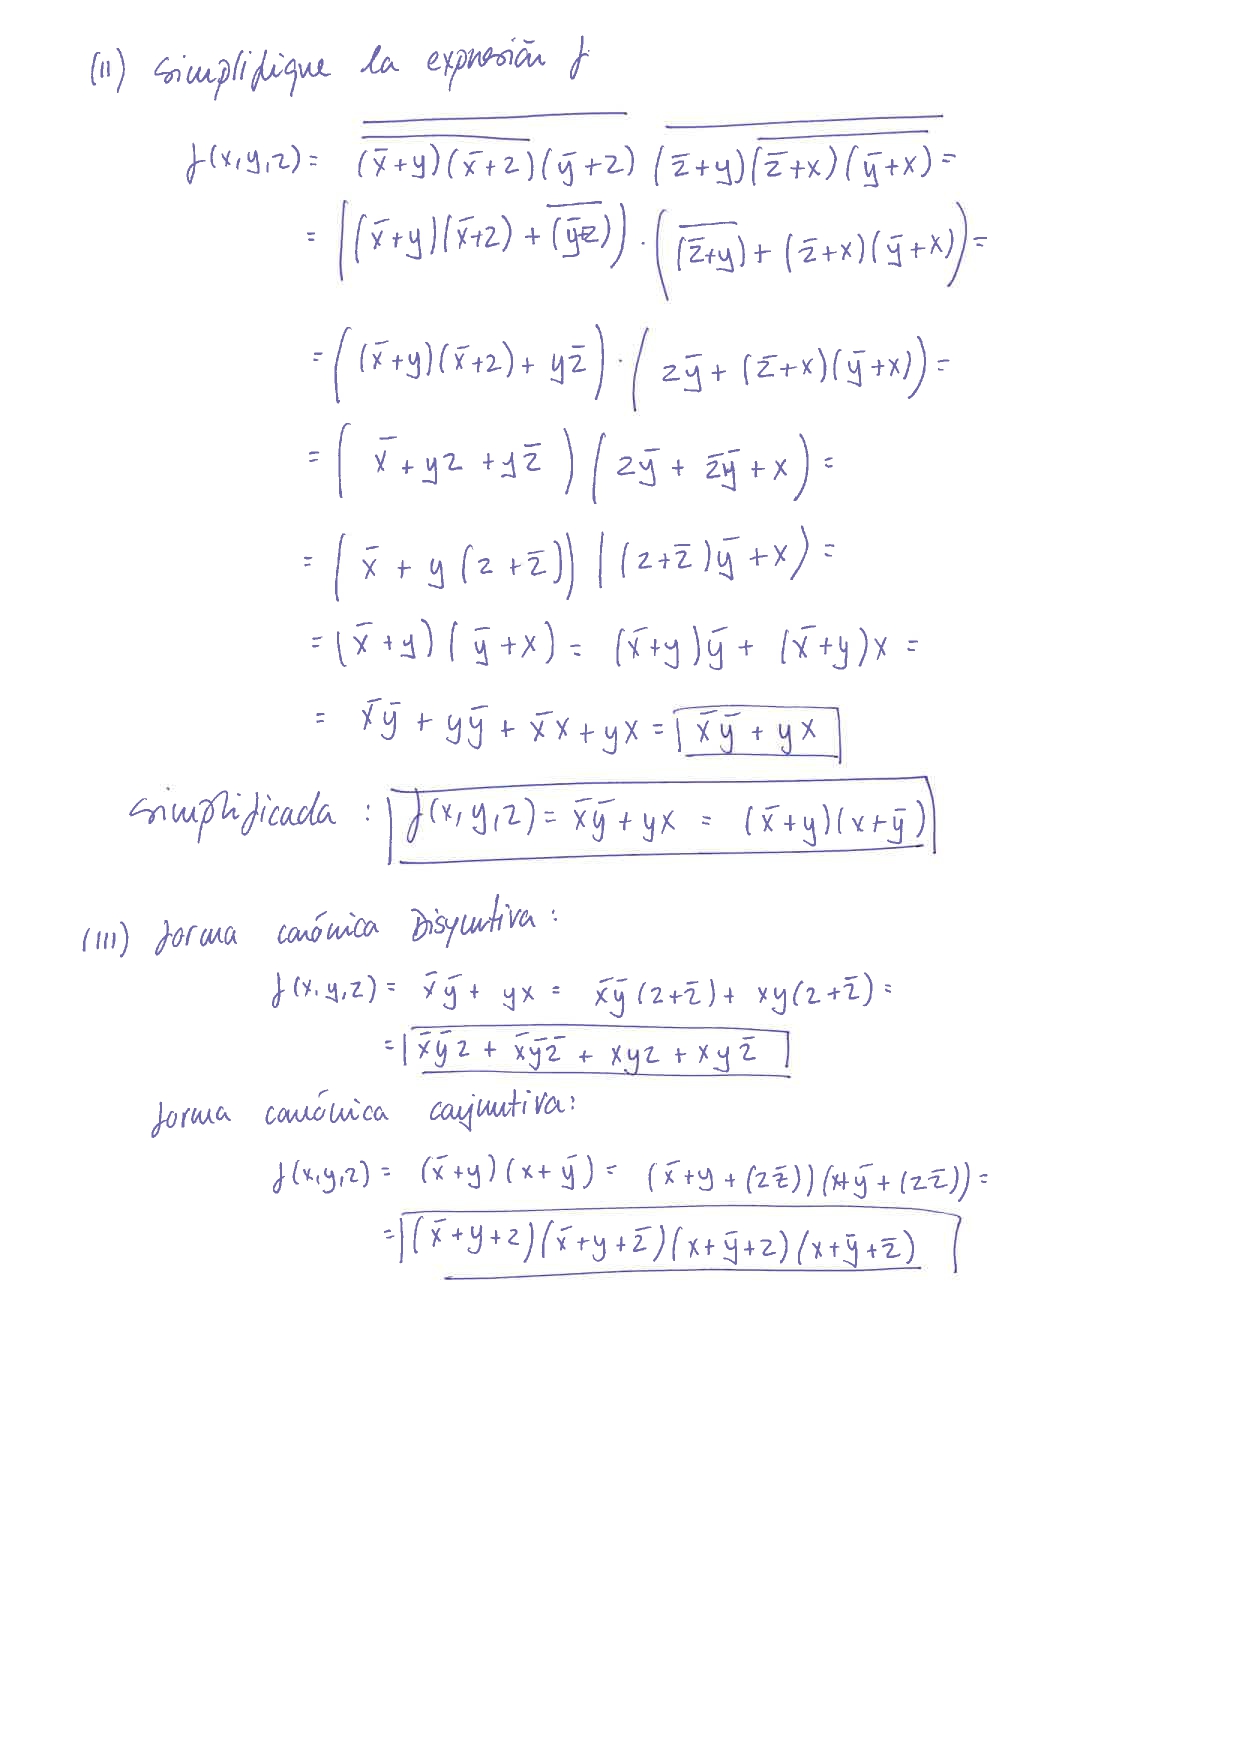 (II) Simplifique la expresión f
f(x,y,z) = \overline{\overline{(x̄+y)(x̄+z)}(ȳ+z)} \overline{(z̄+y)\overline{(z̄+x)(ȳ+x)}} =
= ((x̄+y)(x̄+z) + \overline{(ȳ+z)}) · (\overline{(z̄+y)} + (z̄+x)(ȳ+x)) =
= ((x̄+y)(x̄+z) + yz̄) · (zȳ + (z̄+x)(ȳ+x)) =
= (x̄ + yz + yz̄) (zȳ + z̄ȳ + x) =
= (x̄ + y(z+z̄)) ((z+z̄)ȳ + x) =
= (x̄+y)(ȳ+x) = (x̄+y)ȳ + (x̄+y)x =
= x̄ȳ + yȳ + x̄x + yx = x̄ȳ + yx
Simplificada : f(x,y,z) = x̄ȳ + yx = (x̄+y)(x+ȳ)
(III) forma canónica Disyuntiva :
f(x,y,z) = x̄ȳ + yx = x̄ȳ(z+z̄) + xy(z+z̄) =
= x̄ȳz + x̄ȳz̄ + xyz + xyz̄
forma canónica conjuntiva:
f(x,y,z) = (x̄+y)(x+ȳ) = (x̄+y+(zz̄))(x+ȳ+(zz̄)) =
= (x̄+y+z)(x̄+y+z̄)(x+ȳ+z)(x+ȳ+z̄)